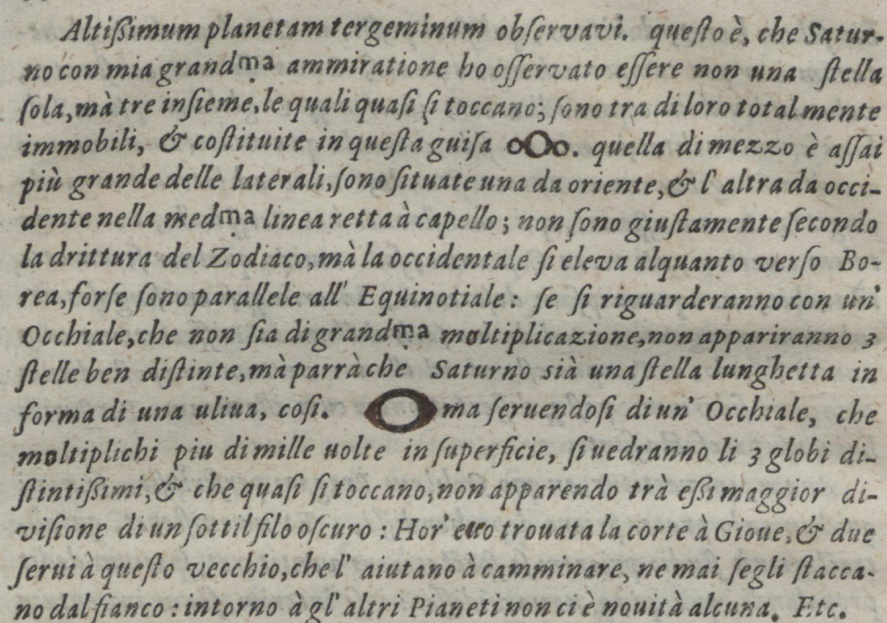 Altißimum planetam tergeminum obſervavi. queſto è, che Satur-
no con mia grandma ammiratione ho oſſervato eſſere non una ſtella
ſola, mà tre inſieme, le quali quaſi ſi toccano; ſono tra di loro totalmente
immobili, & coſtituite in queſta guiſa oOo. quella di mezzo è aſſai
più grande delle laterali, ſono ſituate una da oriente, & l' altra da occi-
dente nella medma linea retta à capello; non ſono giuſtamente ſecondo
la drittura del Zodiaco, mà la occidentale ſi eleva alquanto verſo Bo-
rea, forſe ſono parallele all' Equinotiale: ſe ſi riguarderanno con un'
Occhiale, che non ſia di grandma moltiplicazione, non appariranno 3
ſtelle ben diſtinte, mà parrà che Saturno sià una ſtella lunghetta in
forma di una uliua, coſi. ma ſeruendoſi di un' Occhiale, che
moltiplichi piu di mille uolte in ſuperficie, ſi uedranno li 3 globi di-
ſtintißimi, & che quaſi ſi toccano, non apparendo trà eßi maggior di-
viſione di un ſottil filo oſcuro: Hor' ecco trouata la corte à Gioue, & due
ſerui à queſto vecchio, che l' aiutano à camminare, ne mai ſegli ſtacca-
no dal fianco: intorno à gl' altri Pianeti non ci è nouità alcuna. Etc.